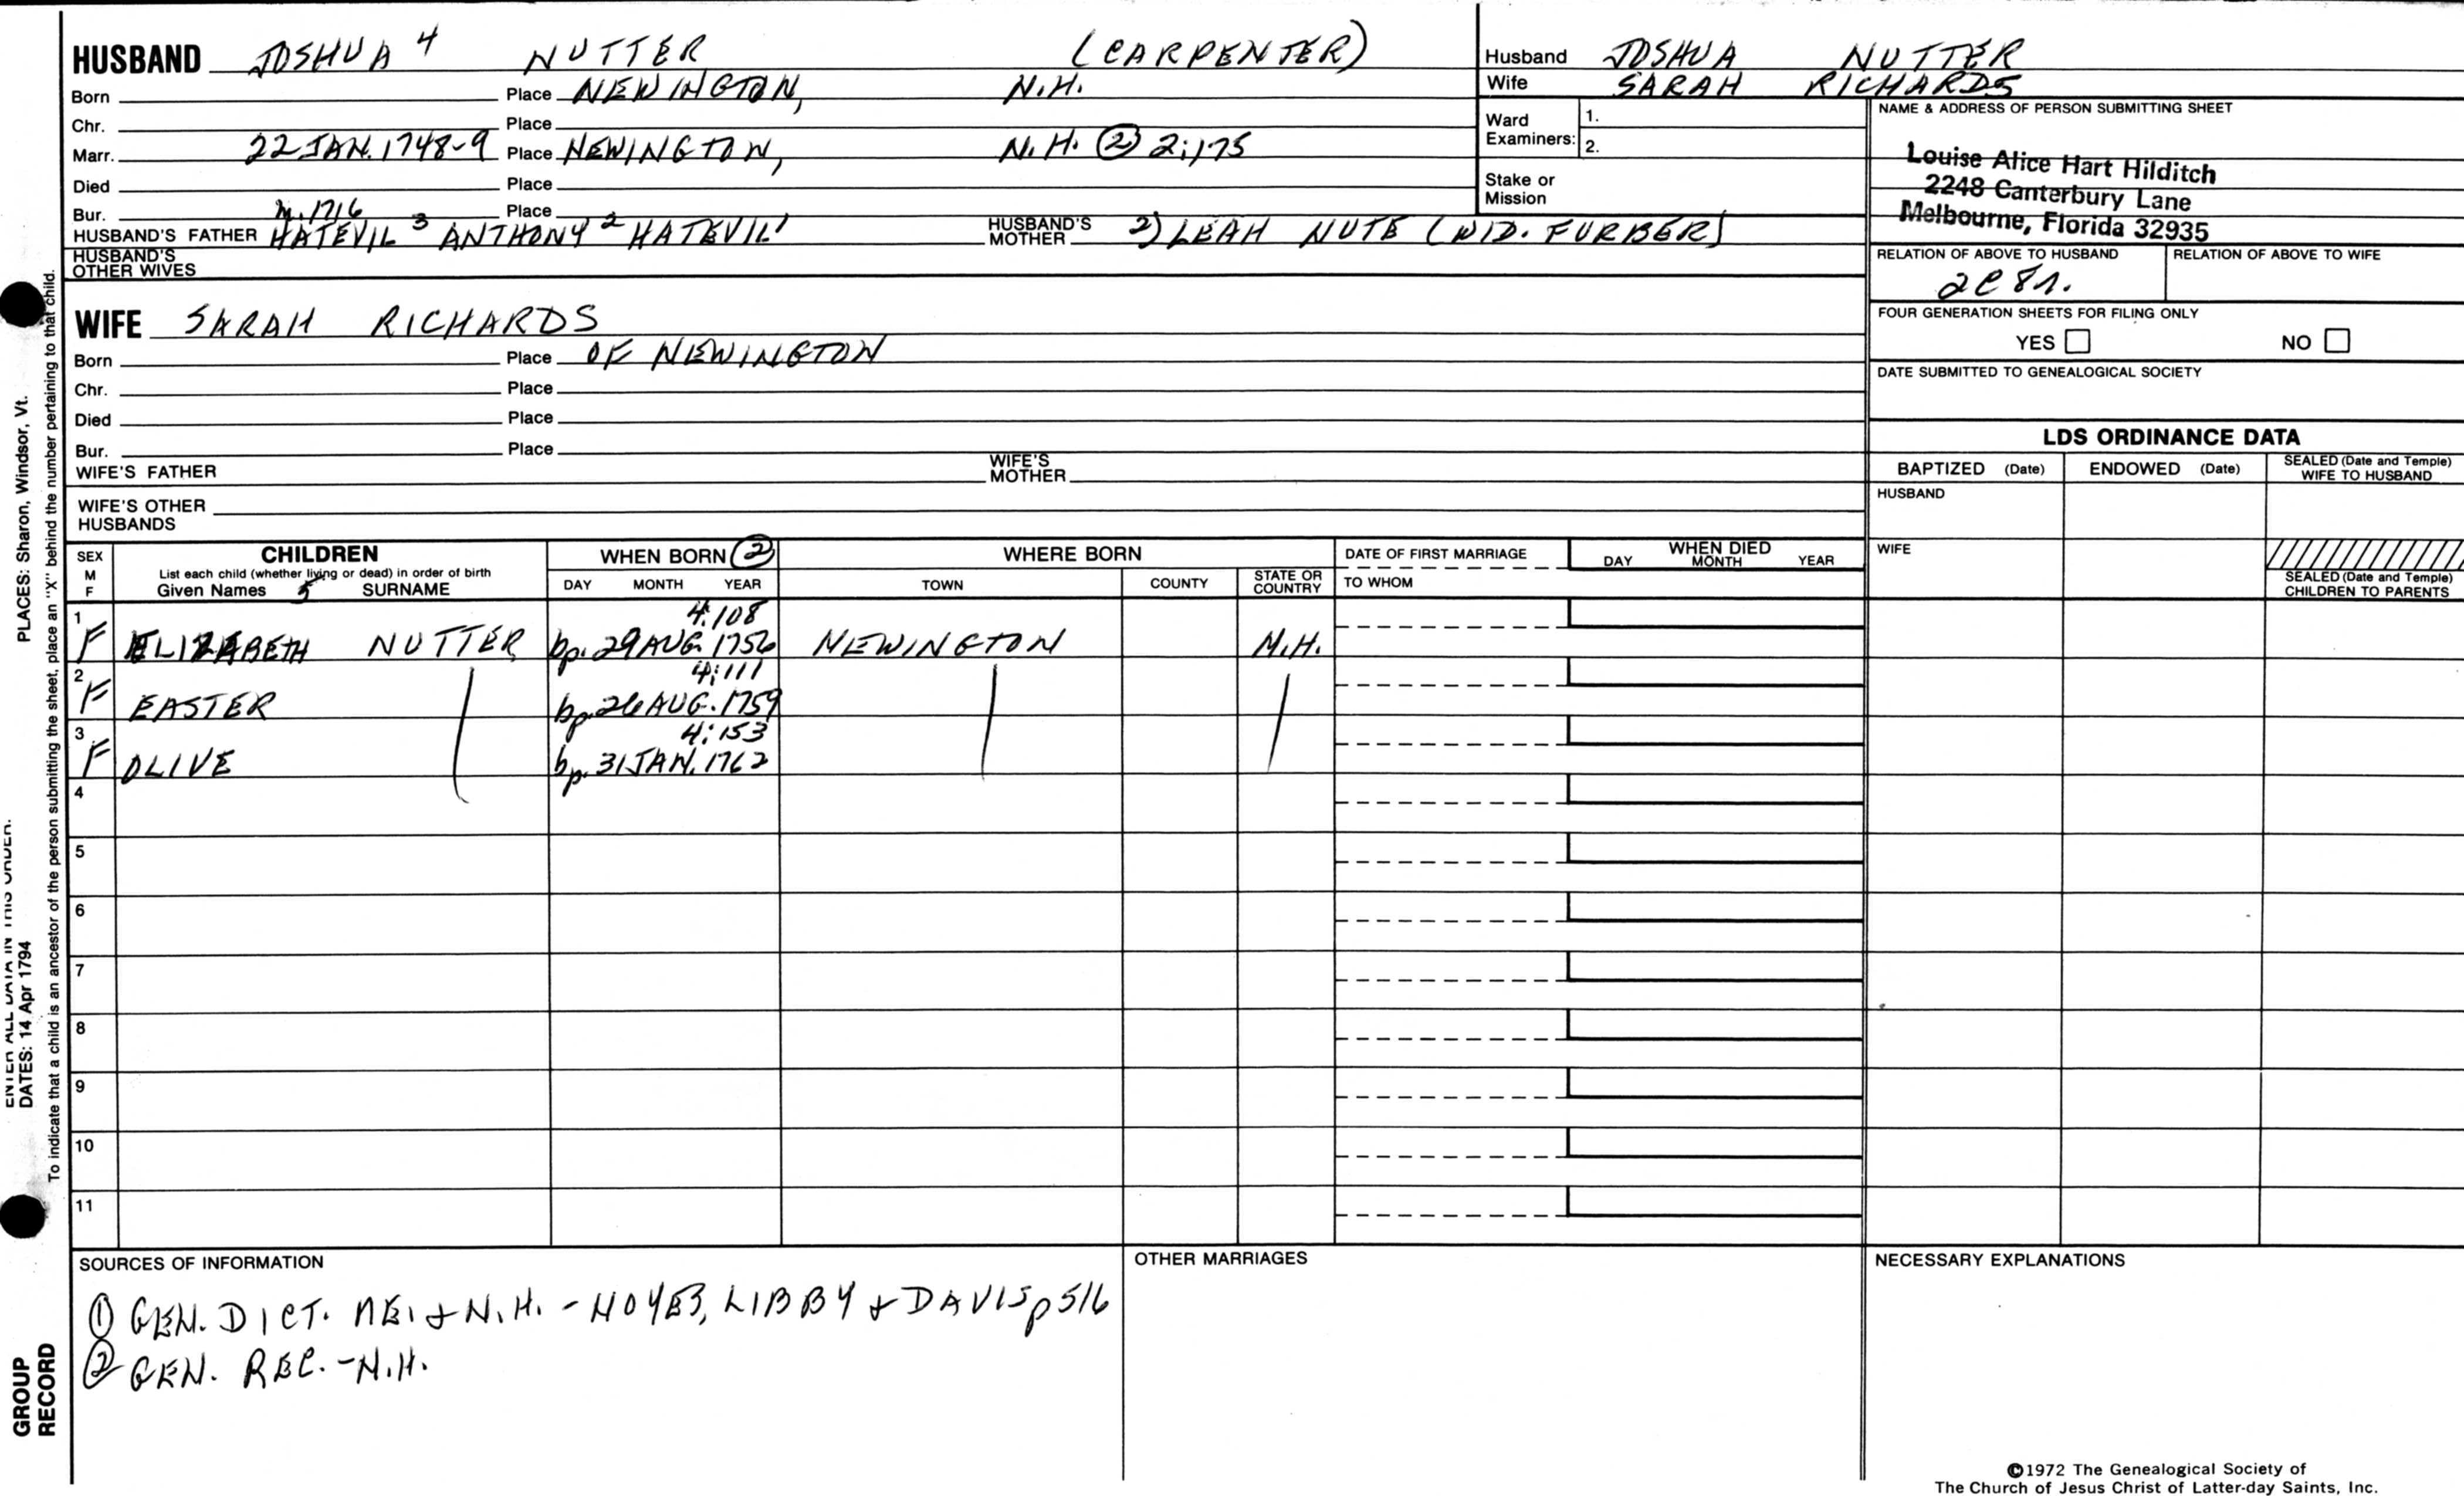 HUSBAND JOSHUA 4 NUTTER (CARPENTER)
Born Place NEWINGTON, N.H.
Chr. Place
Marr. 22 JAN. 1748-9 Place NEWINGTON, N.H. ② 2:175
Died Place
Bur. Place
m. 1716
HUSBAND'S FATHER HATEVIL 3 ANTHONY 2 HATEVIL 1 HUSBAND'S MOTHER 2) LEAH NUTE (WID. FURBER)
HUSBAND'S OTHER WIVES
Husband JOSHUA NUTTER
Wife SARAH RICHARDS
Ward Examiners: 1.
2.
Stake or Mission
NAME & ADDRESS OF PERSON SUBMITTING SHEET
Louise Alice Hart Hilditch
2248 Canterbury Lane
Melbourne, Florida 32935
RELATION OF ABOVE TO HUSBAND RELATION OF ABOVE TO WIFE
2C 8r.
FOUR GENERATION SHEETS FOR FILING ONLY
YES NO
DATE SUBMITTED TO GENEALOGICAL SOCIETY
WIFE SARAH RICHARDS
Born Place OF NEWINGTON
Chr. Place
Died Place
Bur. Place
WIFE'S FATHER WIFE'S MOTHER
WIFE'S OTHER HUSBANDS
LDS ORDINANCE DATA
BAPTIZED (Date) ENDOWED (Date) SEALED (Date and Temple) WIFE TO HUSBAND
HUSBAND
WIFE
SEALED (Date and Temple) CHILDREN TO PARENTS
SEX M F CHILDREN WHEN BORN ② WHERE BORN DATE OF FIRST MARRIAGE WHEN DIED
List each child (whether living or dead) in order of birth
Given Names 5 SURNAME DAY MONTH YEAR TOWN COUNTY STATE OR COUNTRY TO WHOM DAY MONTH YEAR
4:108
1 F ELIZABETH NUTTER bp. 29 AUG. 1756 NEWINGTON N.H.
4:111
2 F EASTER bp. 26 AUG. 1759
4:153
3 F OLIVE bp. 31 JAN. 1762
4
5
6
7
8
9
10
11
SOURCES OF INFORMATION
① GEN. DICT. ME. & N.H. - NOYES, LIBBY & DAVIS p 516
② GEN. REC. - N.H.
OTHER MARRIAGES
NECESSARY EXPLANATIONS
©1972 The Genealogical Society of
The Church of Jesus Christ of Latter-day Saints, Inc.
ENTER ALL DATA IN THIS ORDER.
DATES: 14 Apr 1794
PLACES: Sharon, Windsor, Vt.
To indicate that a child is an ancestor of the person submitting the sheet, place an "X" behind the number pertaining to that child.
GROUP
RECORD